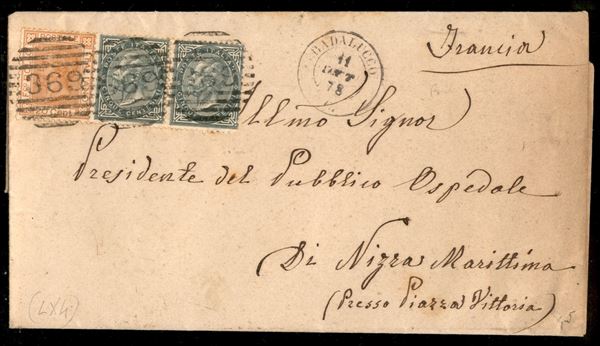 369 369 369
BADALUCCO
11
78
Francia
Illmo Signor
Presidente del Pubblico Ospedale
Di Nizza Marittima
(Presso Piazza Vittoria)
(LX4)